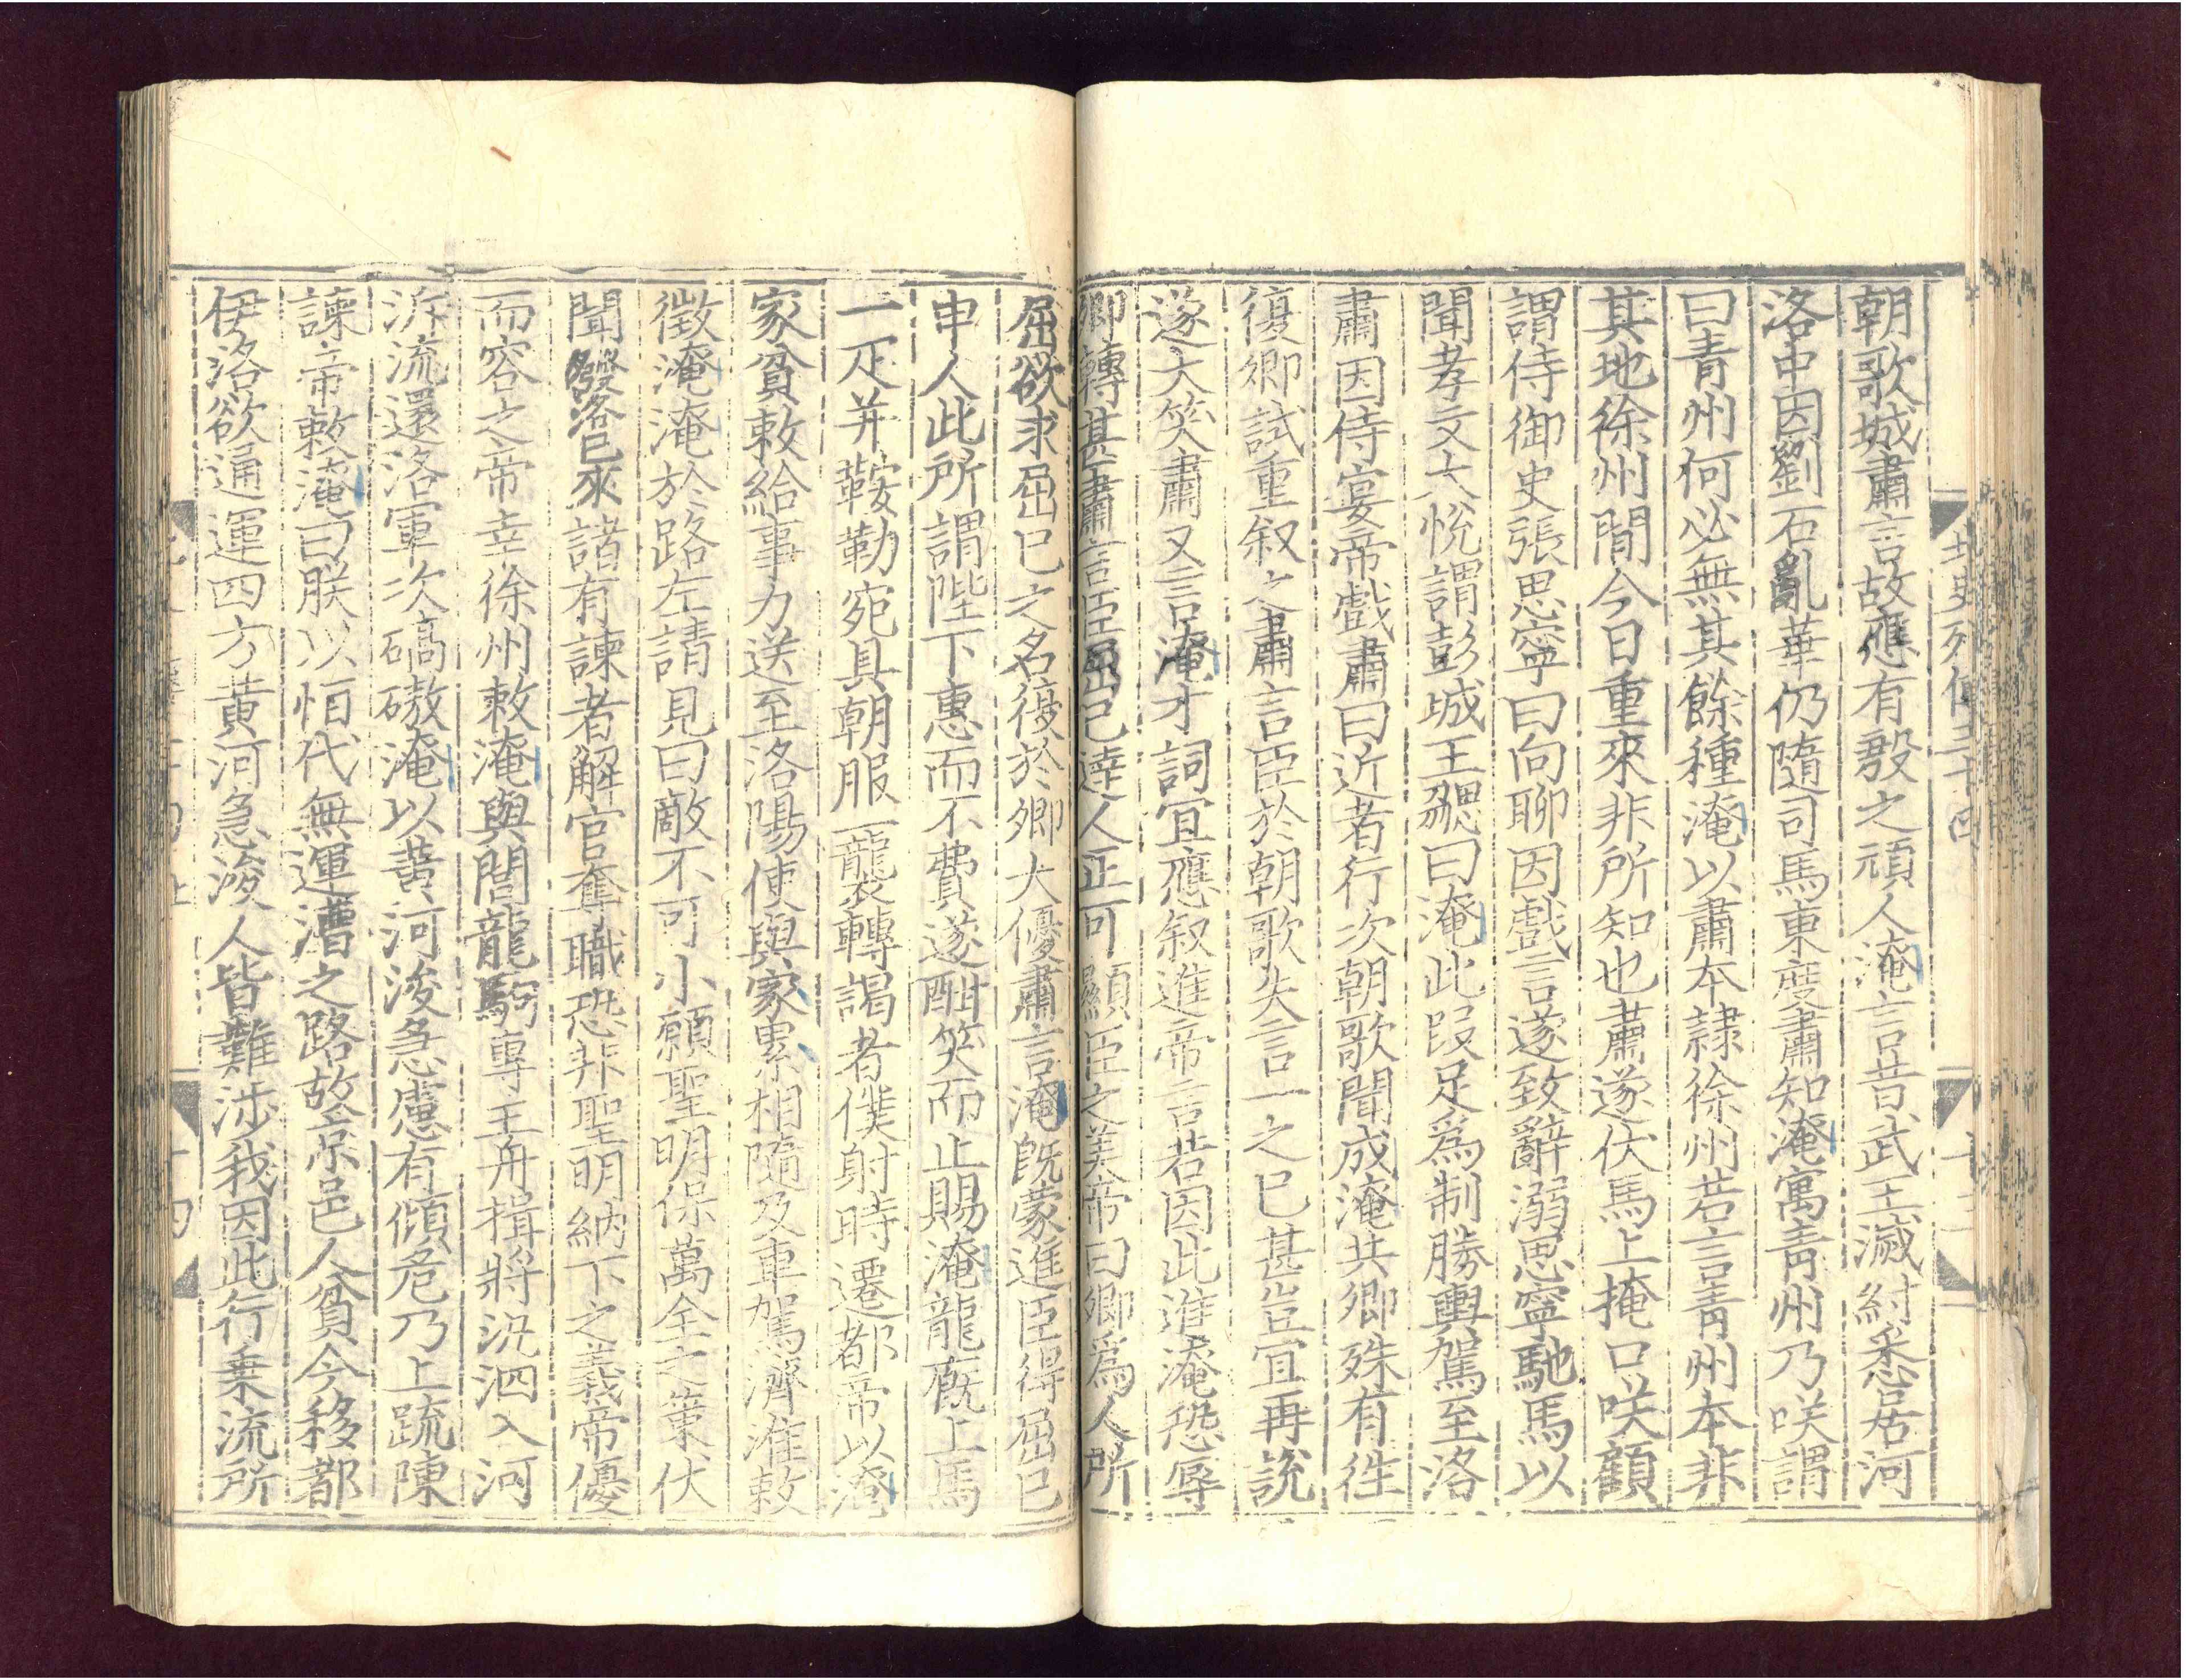 北史列傳三十四
朝歌城肅言故應有殷之頑人淹言昔武王滅紂悉居河
洛中因劉石亂華仍隨司馬東度肅知淹寓青州乃咲謂
曰青州何必無其餘種淹以肅本隸徐州若言青州本非
其地徐州間今日重來非所知也肅遂伏馬上掩口咲顧
謂侍御史張思寧曰向聊因戲言遂致辭溺思寧馳馬以
聞孝文大悅謂彭城王勰曰淹此段足爲制勝輿駕至洛
肅因侍宴帝戲肅曰近者行次朝歌聞成淹共卿殊有徃
復卿試重叙之肅言臣於朝歌失言一之已甚豈宜再說
遂大笑肅又言淹才詞宜應叙進帝言若因此進淹恐辱
卿轉甚肅言臣屈己達人正可顯臣之美帝曰卿爲人所
屈欲求屈已之名復於卿大優肅言淹旣蒙進臣得屈已
申人此所謂陛下惠而不費遂酣笑而止賜淹龍廐上馬
一疋并鞍勒宛具朝服一襲轉謁者僕射時遷都帝以淹
家貧敕給事力送至洛陽使與家累相隨及車駕濟淮敕
徵淹淹於路左請見曰敵不可小願聖明保萬全之䇿伏
聞發洛已來諸有諫者解官奪職恐非聖明納下之義帝優
而容之帝幸徐州敕淹與閭龍駒專主舟揖將汎泗入河
泝流還洛軍次碻磝淹以黄河浚急慮有傾危乃上疏陳
諫帝敕淹曰朕以恒代無運漕之路故京邑人貧今移都
伊洛欲通運四方黄河急浚人皆難涉我因此行乗流所
十四